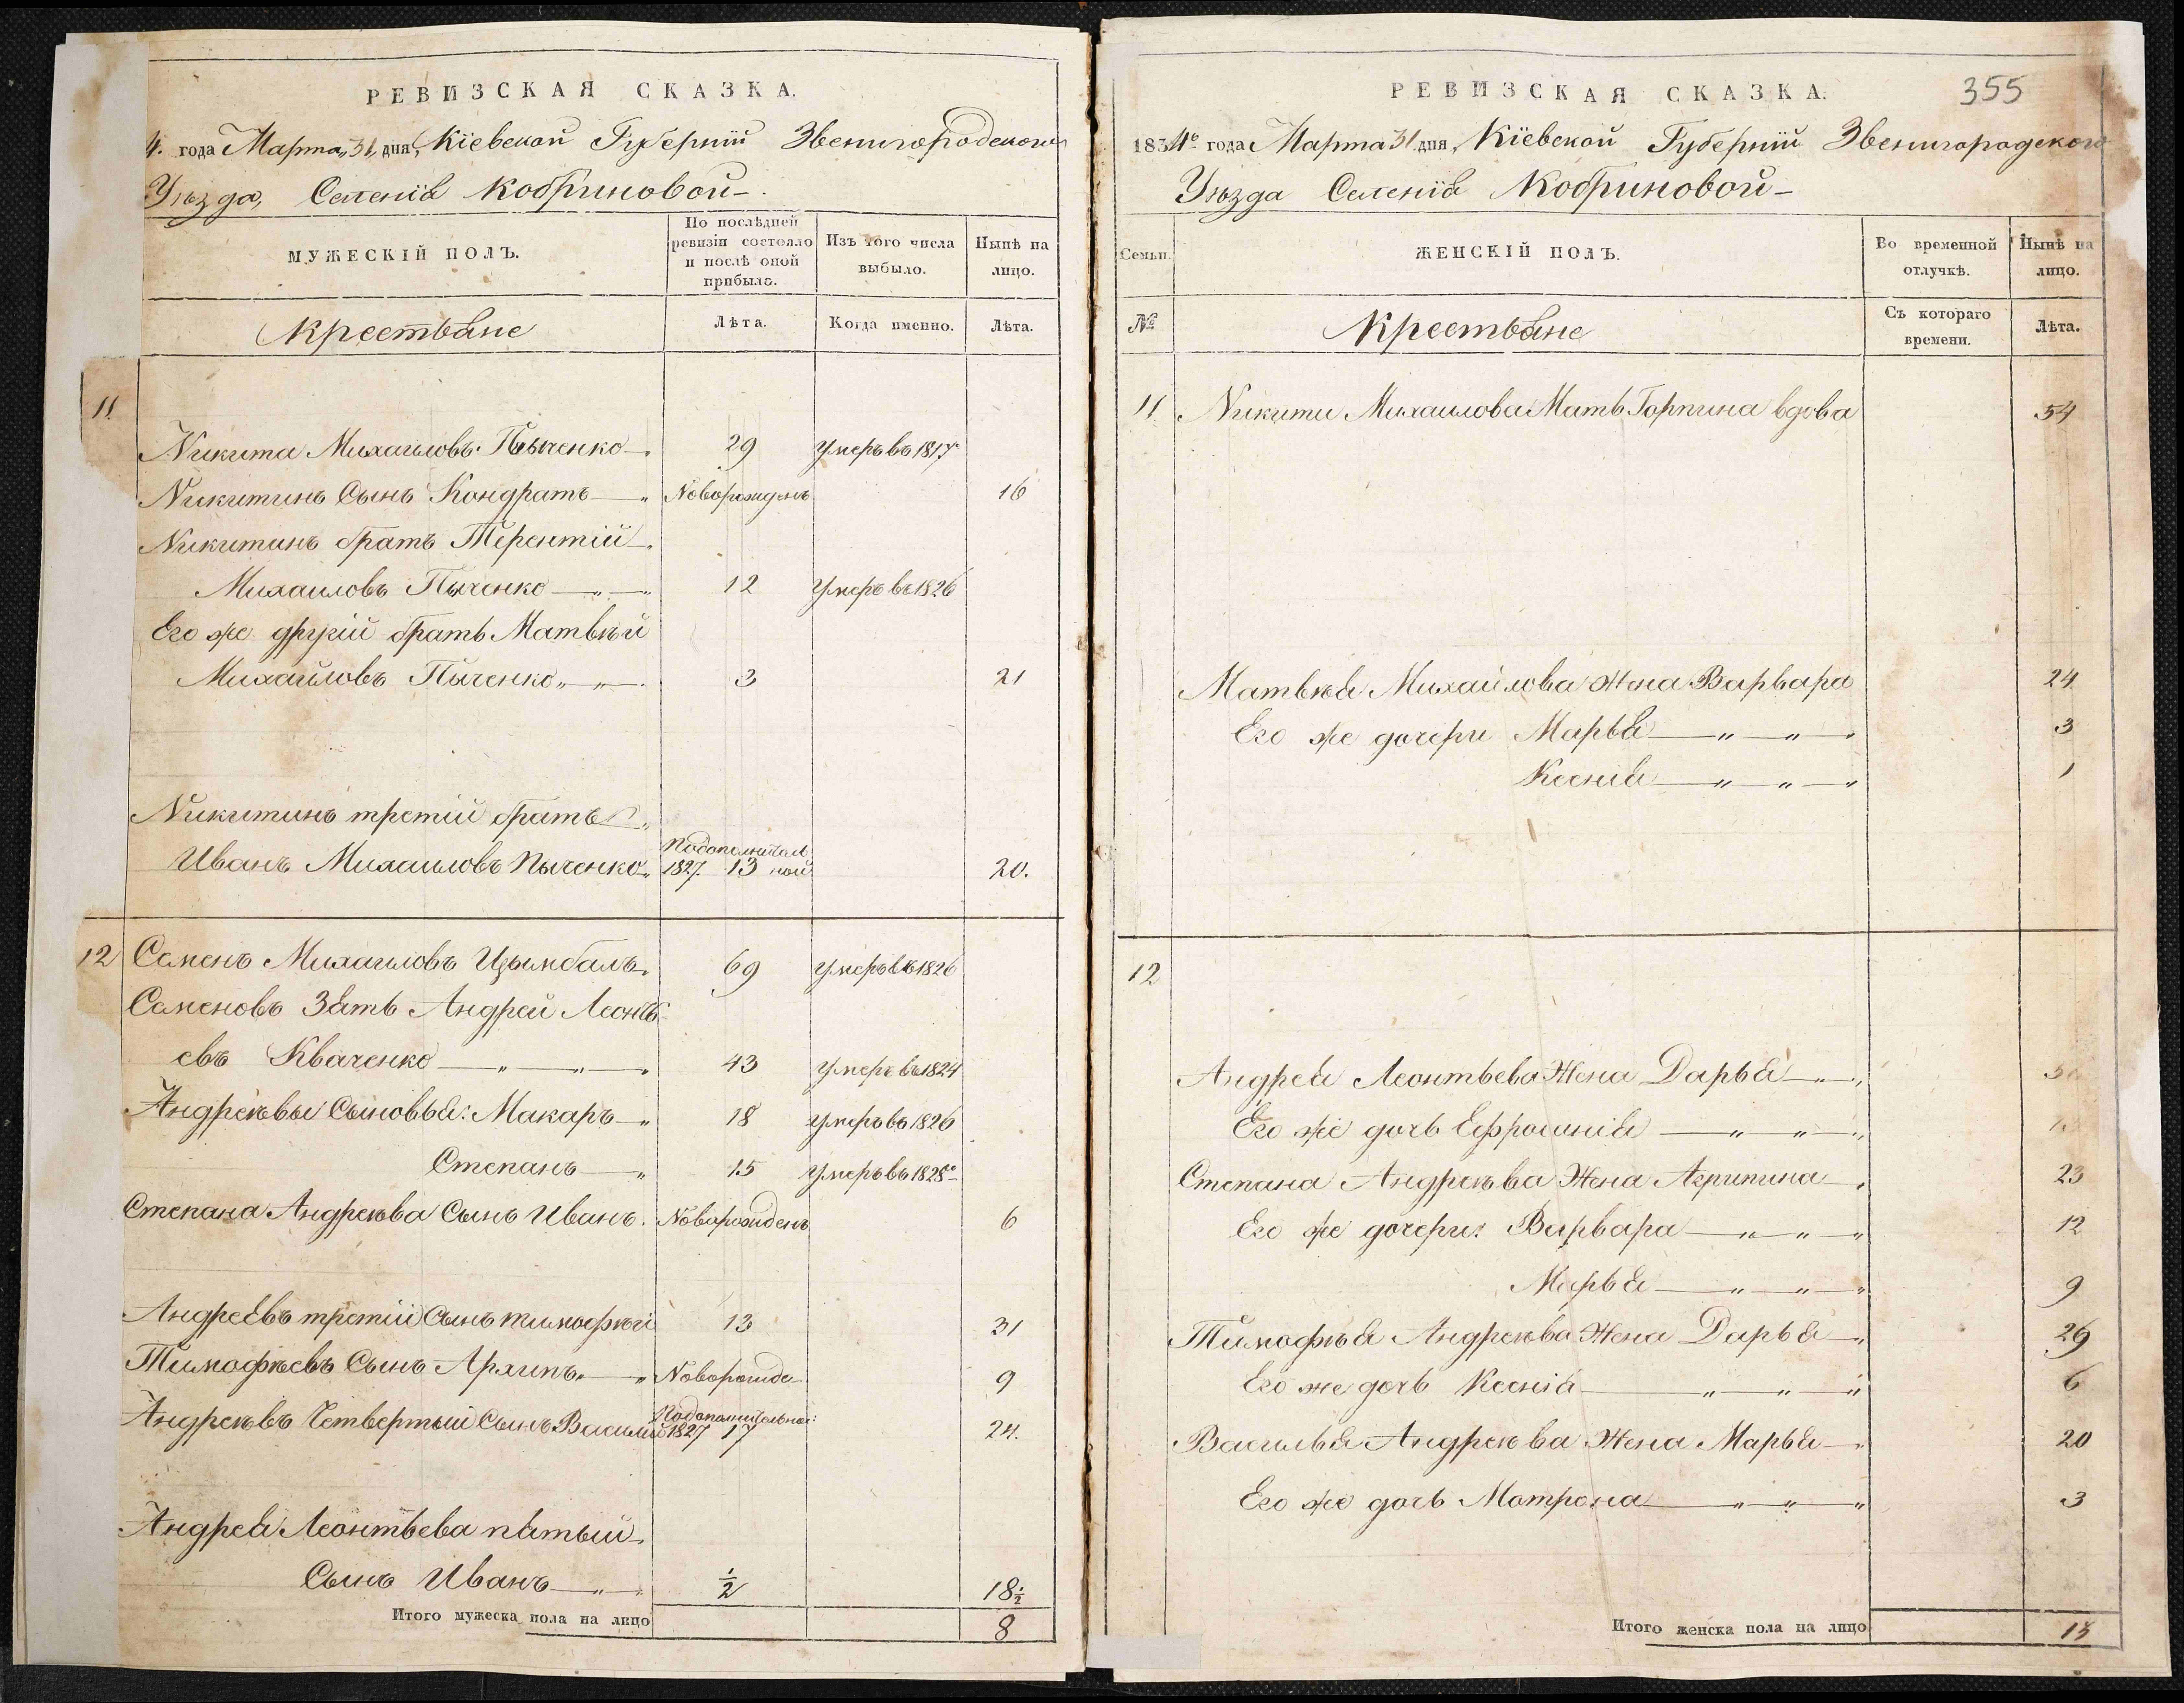 РЕВИЗСКАЯ СКАЗКА.
4. года Марта „31„ дня, Кіевской Губерніи Звенигородского
Уѣзда, Селенія Кобриновой
МУЖЕСКІЙ ПОЛЪ.
По послѣдней ревизіи состояло и послѣ оной прибыло.
Изъ того числа выбыло.
Нынѣ на лицо.
Крестьяне
Лѣта.
Когда именно.
Лѣта.
11.
Никита Михаиловъ Пыченко 29 умеръ въ 1817
Никитинъ Сынъ Кондратъ Новорожденъ 16
Никитинъ братъ Терентій
Михаиловъ Пыченко 12 умеръ въ 1826
Его же другій братъ Матвѣй
Михайловъ Пыченко 3 21
Никитинъ третій братъ
Иванъ Михаиловъ Пыченко По дополнительной 1827. 13 20.
12 Семенъ Михаиловъ Цымбалъ 69 умеръ въ 1826
Семеновъ Зять Андрей Леонть-
евъ Кваченко 43 умеръ въ 1824
Андреѣвы Сыновья: Макаръ 18 умеръ въ 1826
Степанъ 15 умеръ въ 1828го
Степана Андреѣва Сынъ Иванъ. Новорожденъ 6
Андреевъ третій Сынъ Тимофѣй 13 31
Тимофѣевъ Сынъ Архипъ Новорожде 9
Андреѣвъ Четвертый Сынъ Василий По дополнительной: 1827 17 24.
Андрея Леонтьева пятый
Сынъ Иванъ ½ 18½
Итого мужеска пола на лицо 8
355
РЕВИЗСКАЯ СКАЗКА.
1834го года Марта 31 дня, Кіевской Губерніи Звенигородского
Уѣзда Селенія Кобриновой
Семьи.
ЖЕНСКІЙ ПОЛЪ.
Во временной отлучкѣ.
Нынѣ на лицо.
№
Крестьяне
Съ котораго времени.
Лѣта.
11 Никити Михаилова Мать Горпина вдова 54
Матвѣя Михайлова Жена Варвара 24
Его же дочери Марья 3
Ксенія 1
12
Андрея Леонтьева Жена Дарья
Его же дочь Ефросинія
Степана Андреѣва Жена Агрипина 23
Его же дочери: Варвара 12
Марья 9
Тимофѣя Андреѣва Жена Дарья 29
Его же дочь Ксенія 6
Василья Андреѣва Жена Марья 20
Его же дочь Матрона 3
Итого женска пола на лицо 13